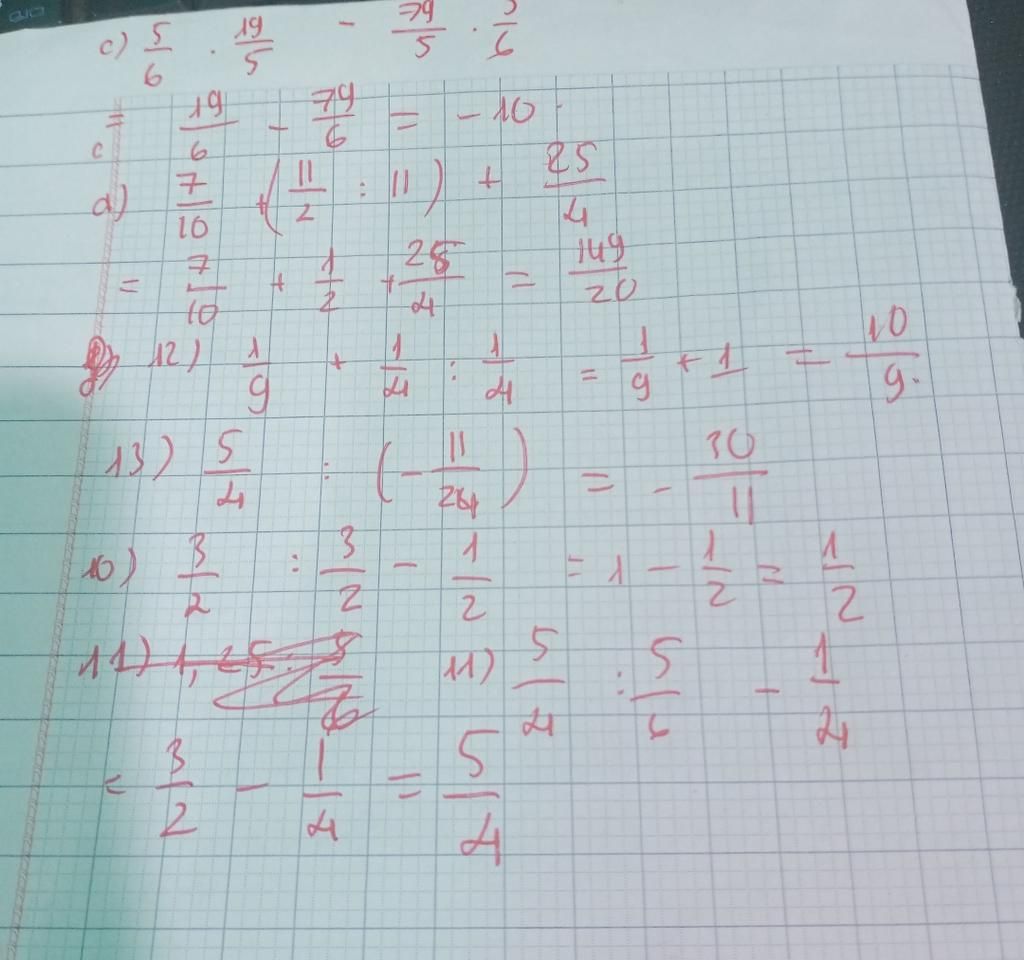 c) 5/6 . 19/5 - 79/5 . 5/6
= 19/6 - 79/6 = -10
c
d) 7/10 + (11/2 : 11) + 25/4
= 7/10 + 1/2 + 25/4 = 149/20
12) 1/9 + 1/4 : 1/4 = 1/9 + 1 = 10/9.
13) 5/4 : (- 11/24) = - 30/11
10) 3/2 : 3/2 - 1/2 = 1 - 1/2 = 1/2
11) 1,25 : 5/6 11) 5/4 : 5/6 - 1/4
= 3/2 - 1/4 = 5/4